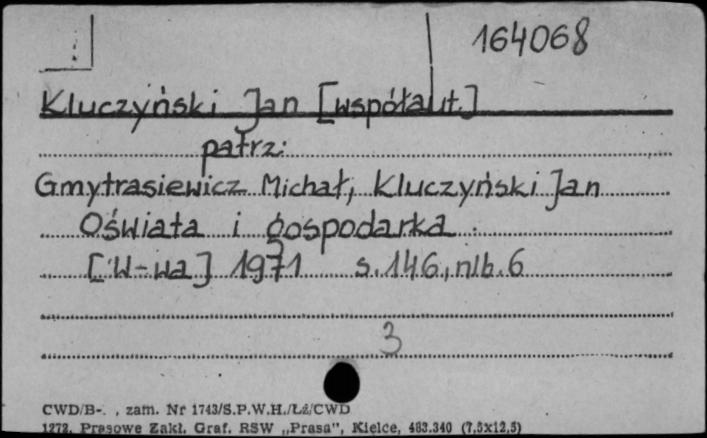 164068
Kluczyński Jan [współaut.]
patrz:
Gmytrasiewicz Michał, Kluczyński Jan
Oświata i gospodarka.
[W-wa] 1971 s.146, nlb.6
3
CWD/B-. , zam. Nr 1743/S.P.W.H./Łż/CWD
1272. Prasowe Zakł. Graf. RSW „Prasa”, Kielce, 483.340 (7,5x12,5)